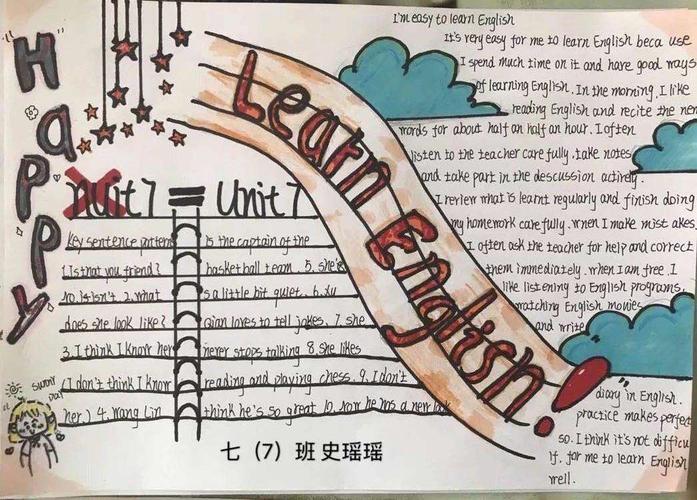 Happy
Learn English!
I'm easy to learn English
It's very easy for me to learn English beca use
I spend much time on it and have good ways
of learning English. In the morning. I like
reading English and recite the new
words for about half an half an hour. I often
listen to the teacher carefully. take notes
and take part in the descussion actively.
I reriew what is learnt regularly and finish doing
my homework carefully. when I make mist akes.
I often ask the teacher for help and correct
them immediately. when I am free. I
like listening to English programs,
watching English movies
and write
diary in English.
practice makes perfect
so. I think it's not difficu
lt. for me to learn English
well.
nuit 7 = Unit 7
key sentence pattern
1. Is that you friend?
no it isn't 2. what
does she look like?
3. I think I know her
(I don't think I know
her.) 4. Wang Lin
is the captain of the
basketball team 5. she's
s a little bit quiet. 6. xu
Qian loves to tell jokes. 7. she
never stops talking 8 she likes
reading and playing chess. 9. I don't
think he's so great 10. now he has a new look
sunny
day
七（7）班 史瑶瑶